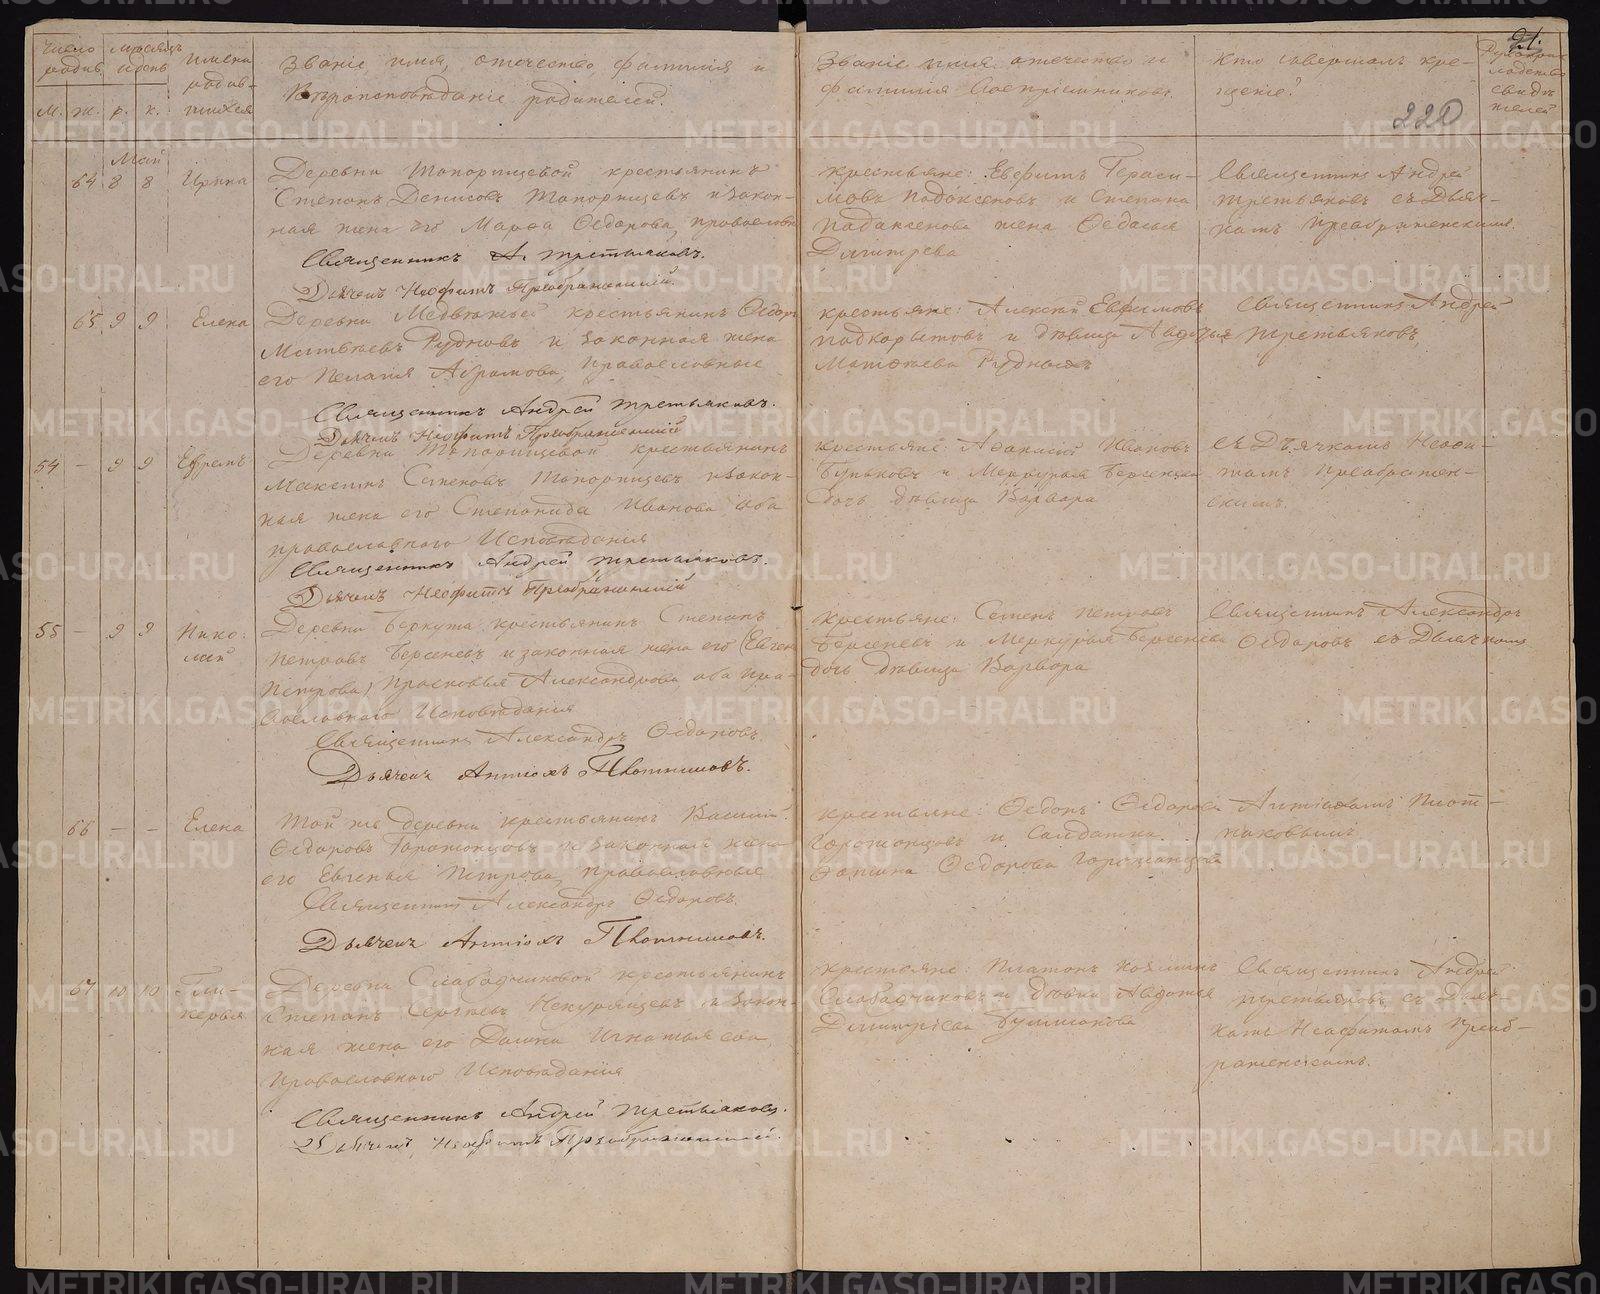 Число родив.
Месяцъ и день
Имена родив-
шихся
М. Ж. р. к.
Званіе, имя, отечество, фамилія и
Вѣроисповѣданіе родителей.
Званіе имя отечество и
фамилія Воспріемниковъ
Кто совершалъ кре-
щеніе?
свидѣ
телей
21.
220
Май
64 8 8 Ирина
Деревни Топорищевой крестьянинъ
Степанъ Денисовъ Топорищевъ и закон-
ная жена его Марѳа Ѳедорова, православн
Священникъ А. Третьяковъ.
Дьячекъ Неофитъ Преображенскій.
крестьяне: Евфимъ Гераси-
мовъ Падоксеновъ и Степана
Падоксенова жена Ѳедосья
Димитрева
Священникъ Андрей
Третьяковъ съ Дьяч-
комъ Преображенскимъ.
65 9 9 Елена
Деревни Медвежьей крестьянинъ Ѳедоръ
Матвѣевъ Рудновъ и законная жена
его Пелагія Абрамова, Православные
Священникъ Андрей Третьяковъ.
Дьячекъ Неофитъ Преображенскій
крестьяне: Алексѣй Евфимовъ
Подкорытовъ и дѣвица Авдотья
Матвѣева Рудныхъ
Священникъ Андрей
Третьяковъ,
54 — 9 9 Ефремъ
Деревни Топорищевой крестьянинъ
Максимъ Семеновъ Топорищевъ и закон-
ная жена его Степанида Иванова оба
православнаго Исповѣданія
Священникъ Андрей Третьяковъ.
Дьячекъ Неофитъ Преображенскій
крестьяне: Аѳанасій Ивановъ
Буньковъ и Меркурья Берсенева
дочь дѣвица Варвара
съ Дьячкомъ Неофи-
томъ Преображен-
скимъ.
55 — 9 9 Нико-
лай
Деревни Беркута крестьянинъ Степанъ
Петровъ Берсеневъ и законная жена его (Евген
Петрова) Прасковья Александрова, оба Пра-
вославнаго Исповѣданія
Священникъ Александръ Ѳедоровъ
Дьячекъ Антіохъ Плотниковъ.
крестьяне: Семенъ Петровъ
Берсеневъ и Меркурья Берсенева
дочь дѣвица Варвара
Священникъ Александръ
Ѳедоровъ съ Дьячкомъ
66 — — Елена
Той же деревни крестьянинъ Василій
Ѳедоровъ Горожанцовъ и законная жена
его Евгенья Петрова, православные
Священникъ Александръ Ѳедоровъ.
Дьячекъ Антіохъ Плотниковъ.
крестьяне: Ѳедоръ Ѳедоровъ
Горожанцовъ и Салдатка
Ѳедорова Горожанцова
Антіохомъ Плот-
никовымъ
67 10 10 Гли-
керья
Деревни Слабодчиковой крестьянинъ
Степанъ Сергѣевъ Некурящевъ и закон-
ная жена его Домна Игнатьева,
Православнаго Исповѣданія
Священникъ Андрей Третьяковъ.
Дьячекъ, Неофитъ Преображенскій.
крестьяне: Платонъ Козминъ
Слабодчиковъ и дѣвка Авдотья
Димитріева
Священникъ Андрей
Третьяковъ съ Дьяч-
комъ Неофитомъ Преоб-
раженскимъ.
METRIKI.GASO-URAL.RU